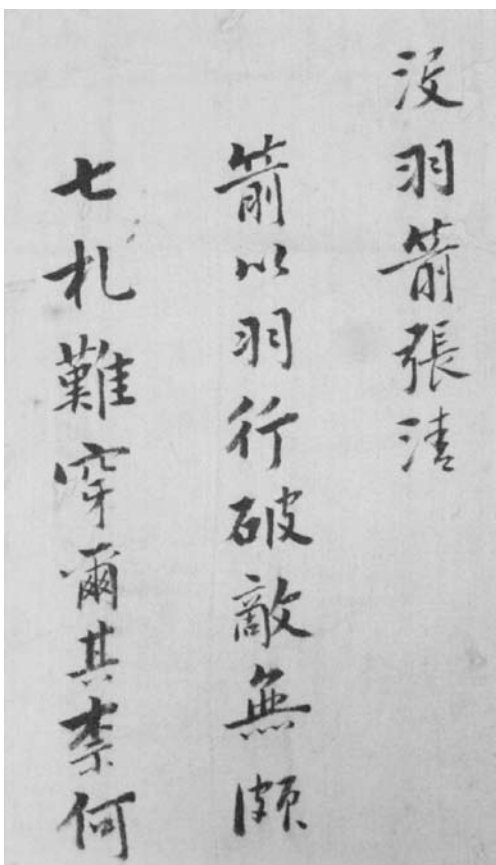 没羽箭張清
箭以羽行破敵無頗
七札難穿爾其柰何